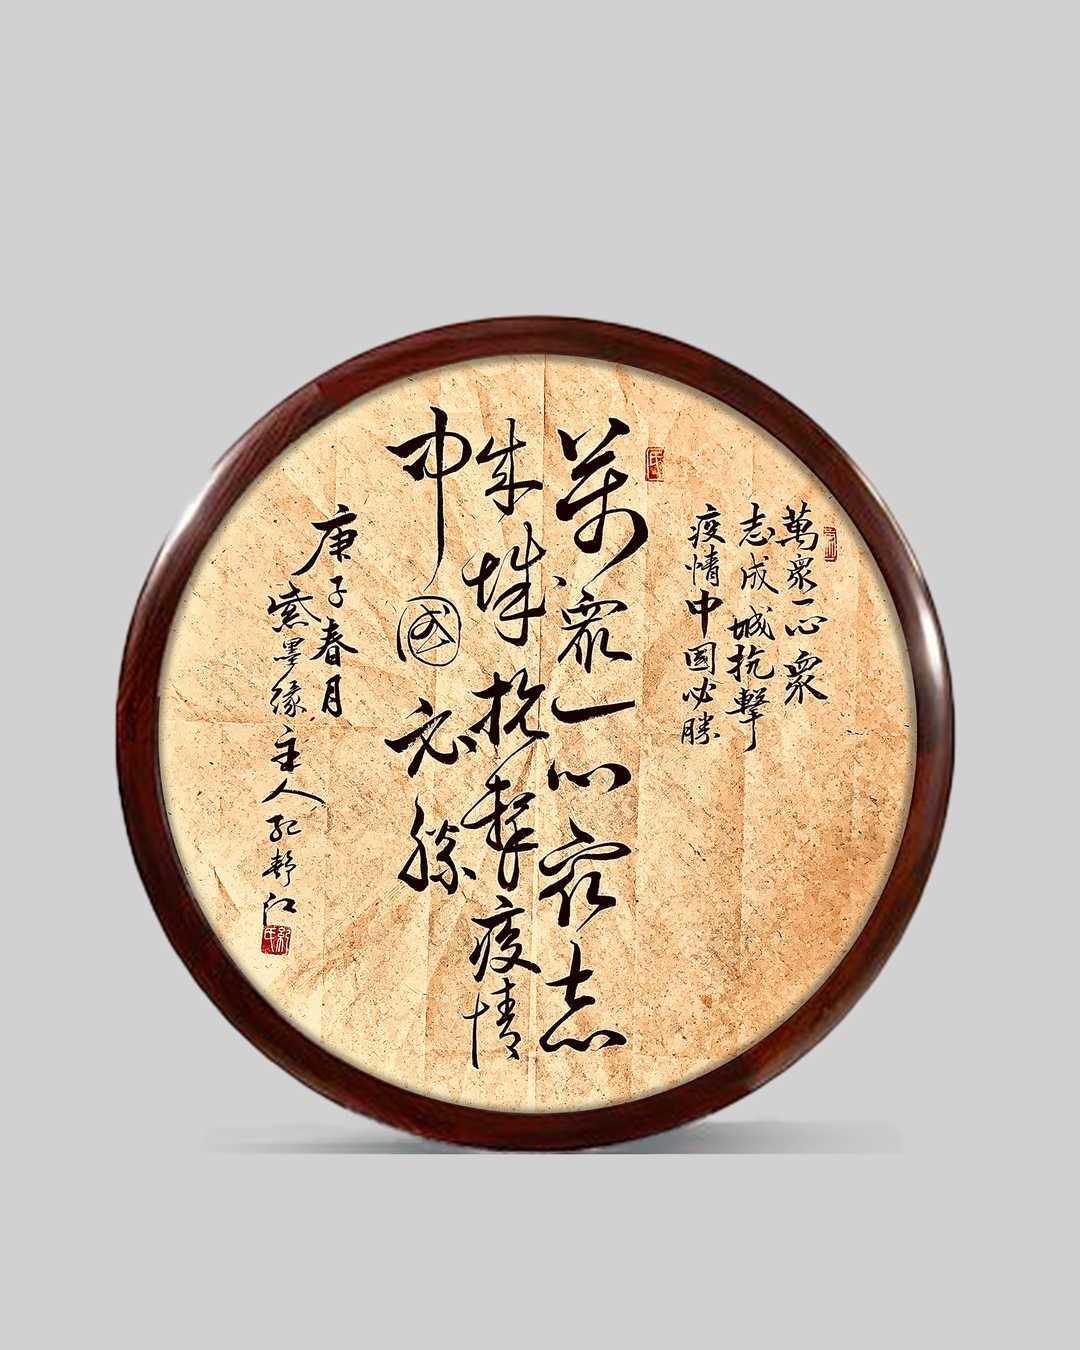 萬衆一心衆
志成城抗擊
疫情中國必勝
萬衆一心衆志
成城抗擊疫情
中國必勝
庚子春月
紫墨缘主人紀静江